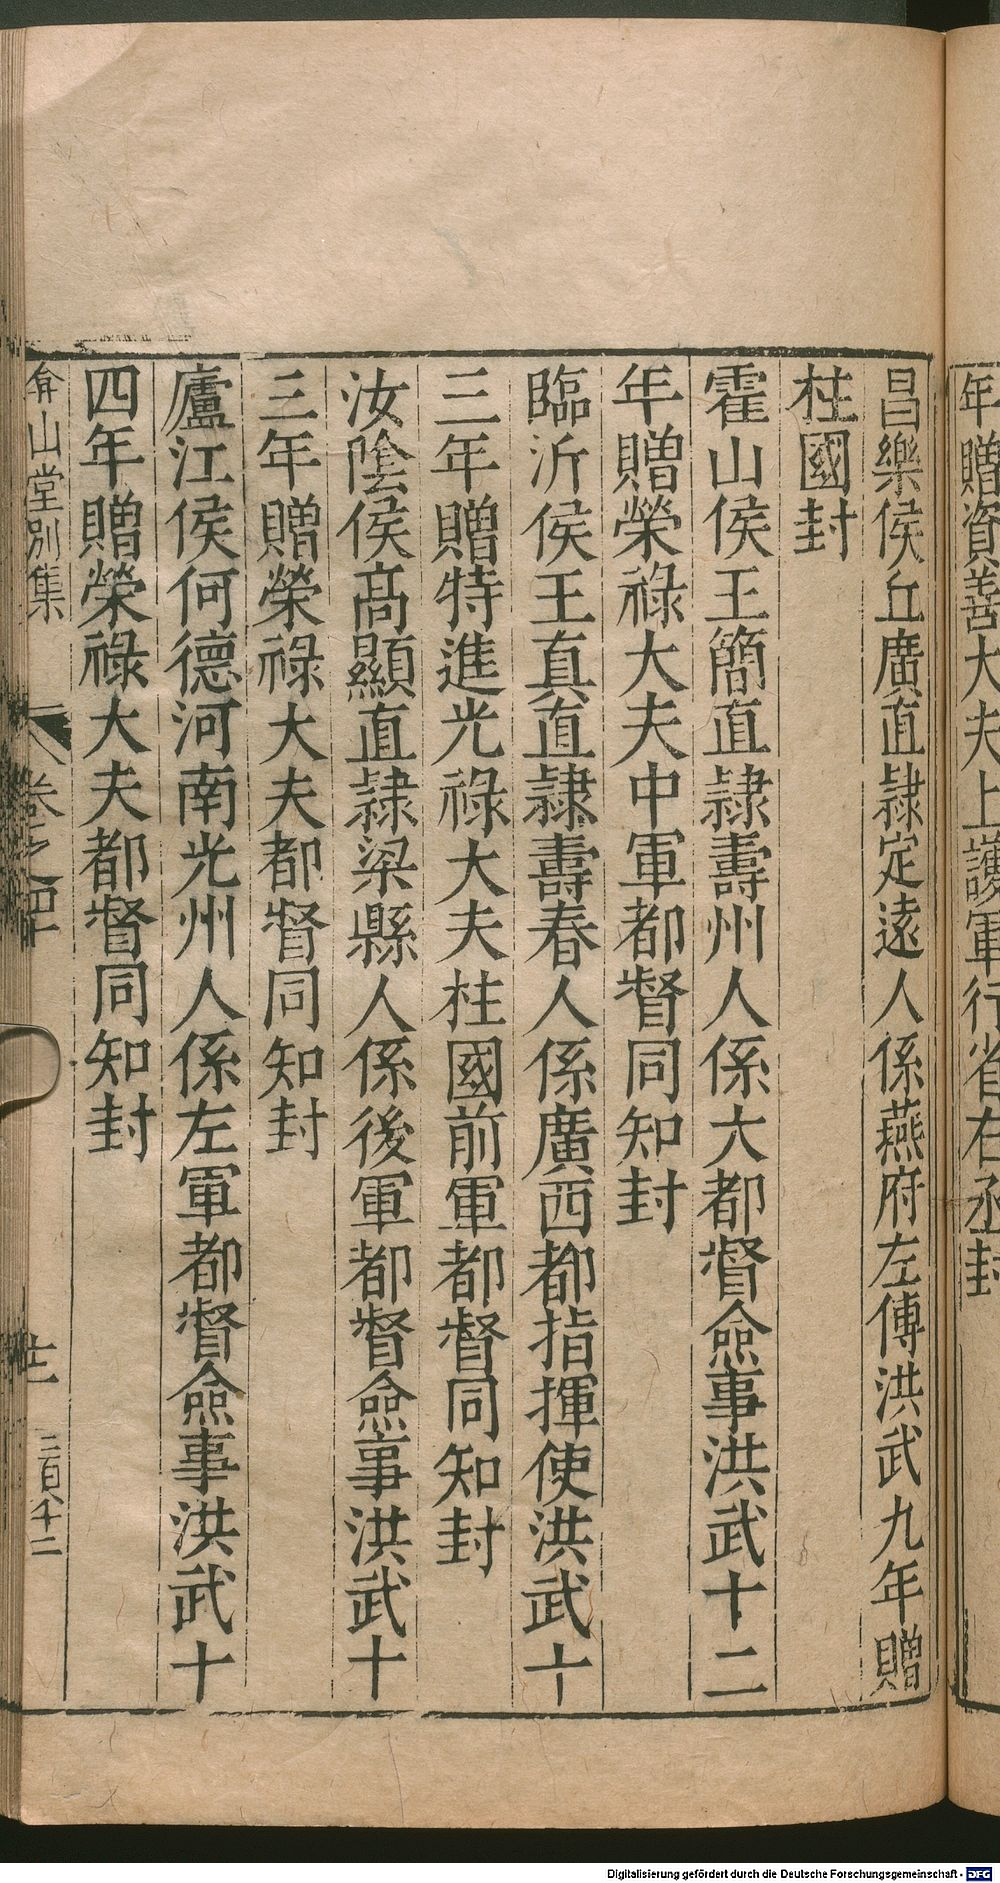 年贈資善大夫上護軍行省右丞封
昌樂侯丘廣直隸定遠人係燕府左傅洪武九年贈
柱國封
霍山侯王簡直隸壽州人係大都督僉事洪武十二
年贈榮祿大夫中軍都督同知封
臨沂侯王真直隸壽春人係廣西都指揮使洪武十
三年贈特進光祿大夫柱國前軍都督同知封
汝陰侯高顯直隸梁縣人係後軍都督僉事洪武十
三年贈榮祿大夫都督同知封
廬江侯何德河南光州人係左軍都督僉事洪武十
四年贈榮祿大夫都督同知封
弇山堂別集 卷之四十 廿二 三百八十二
Digitalisierung gefördert durch die Deutsche Forschungsgemeinschaft - DFG